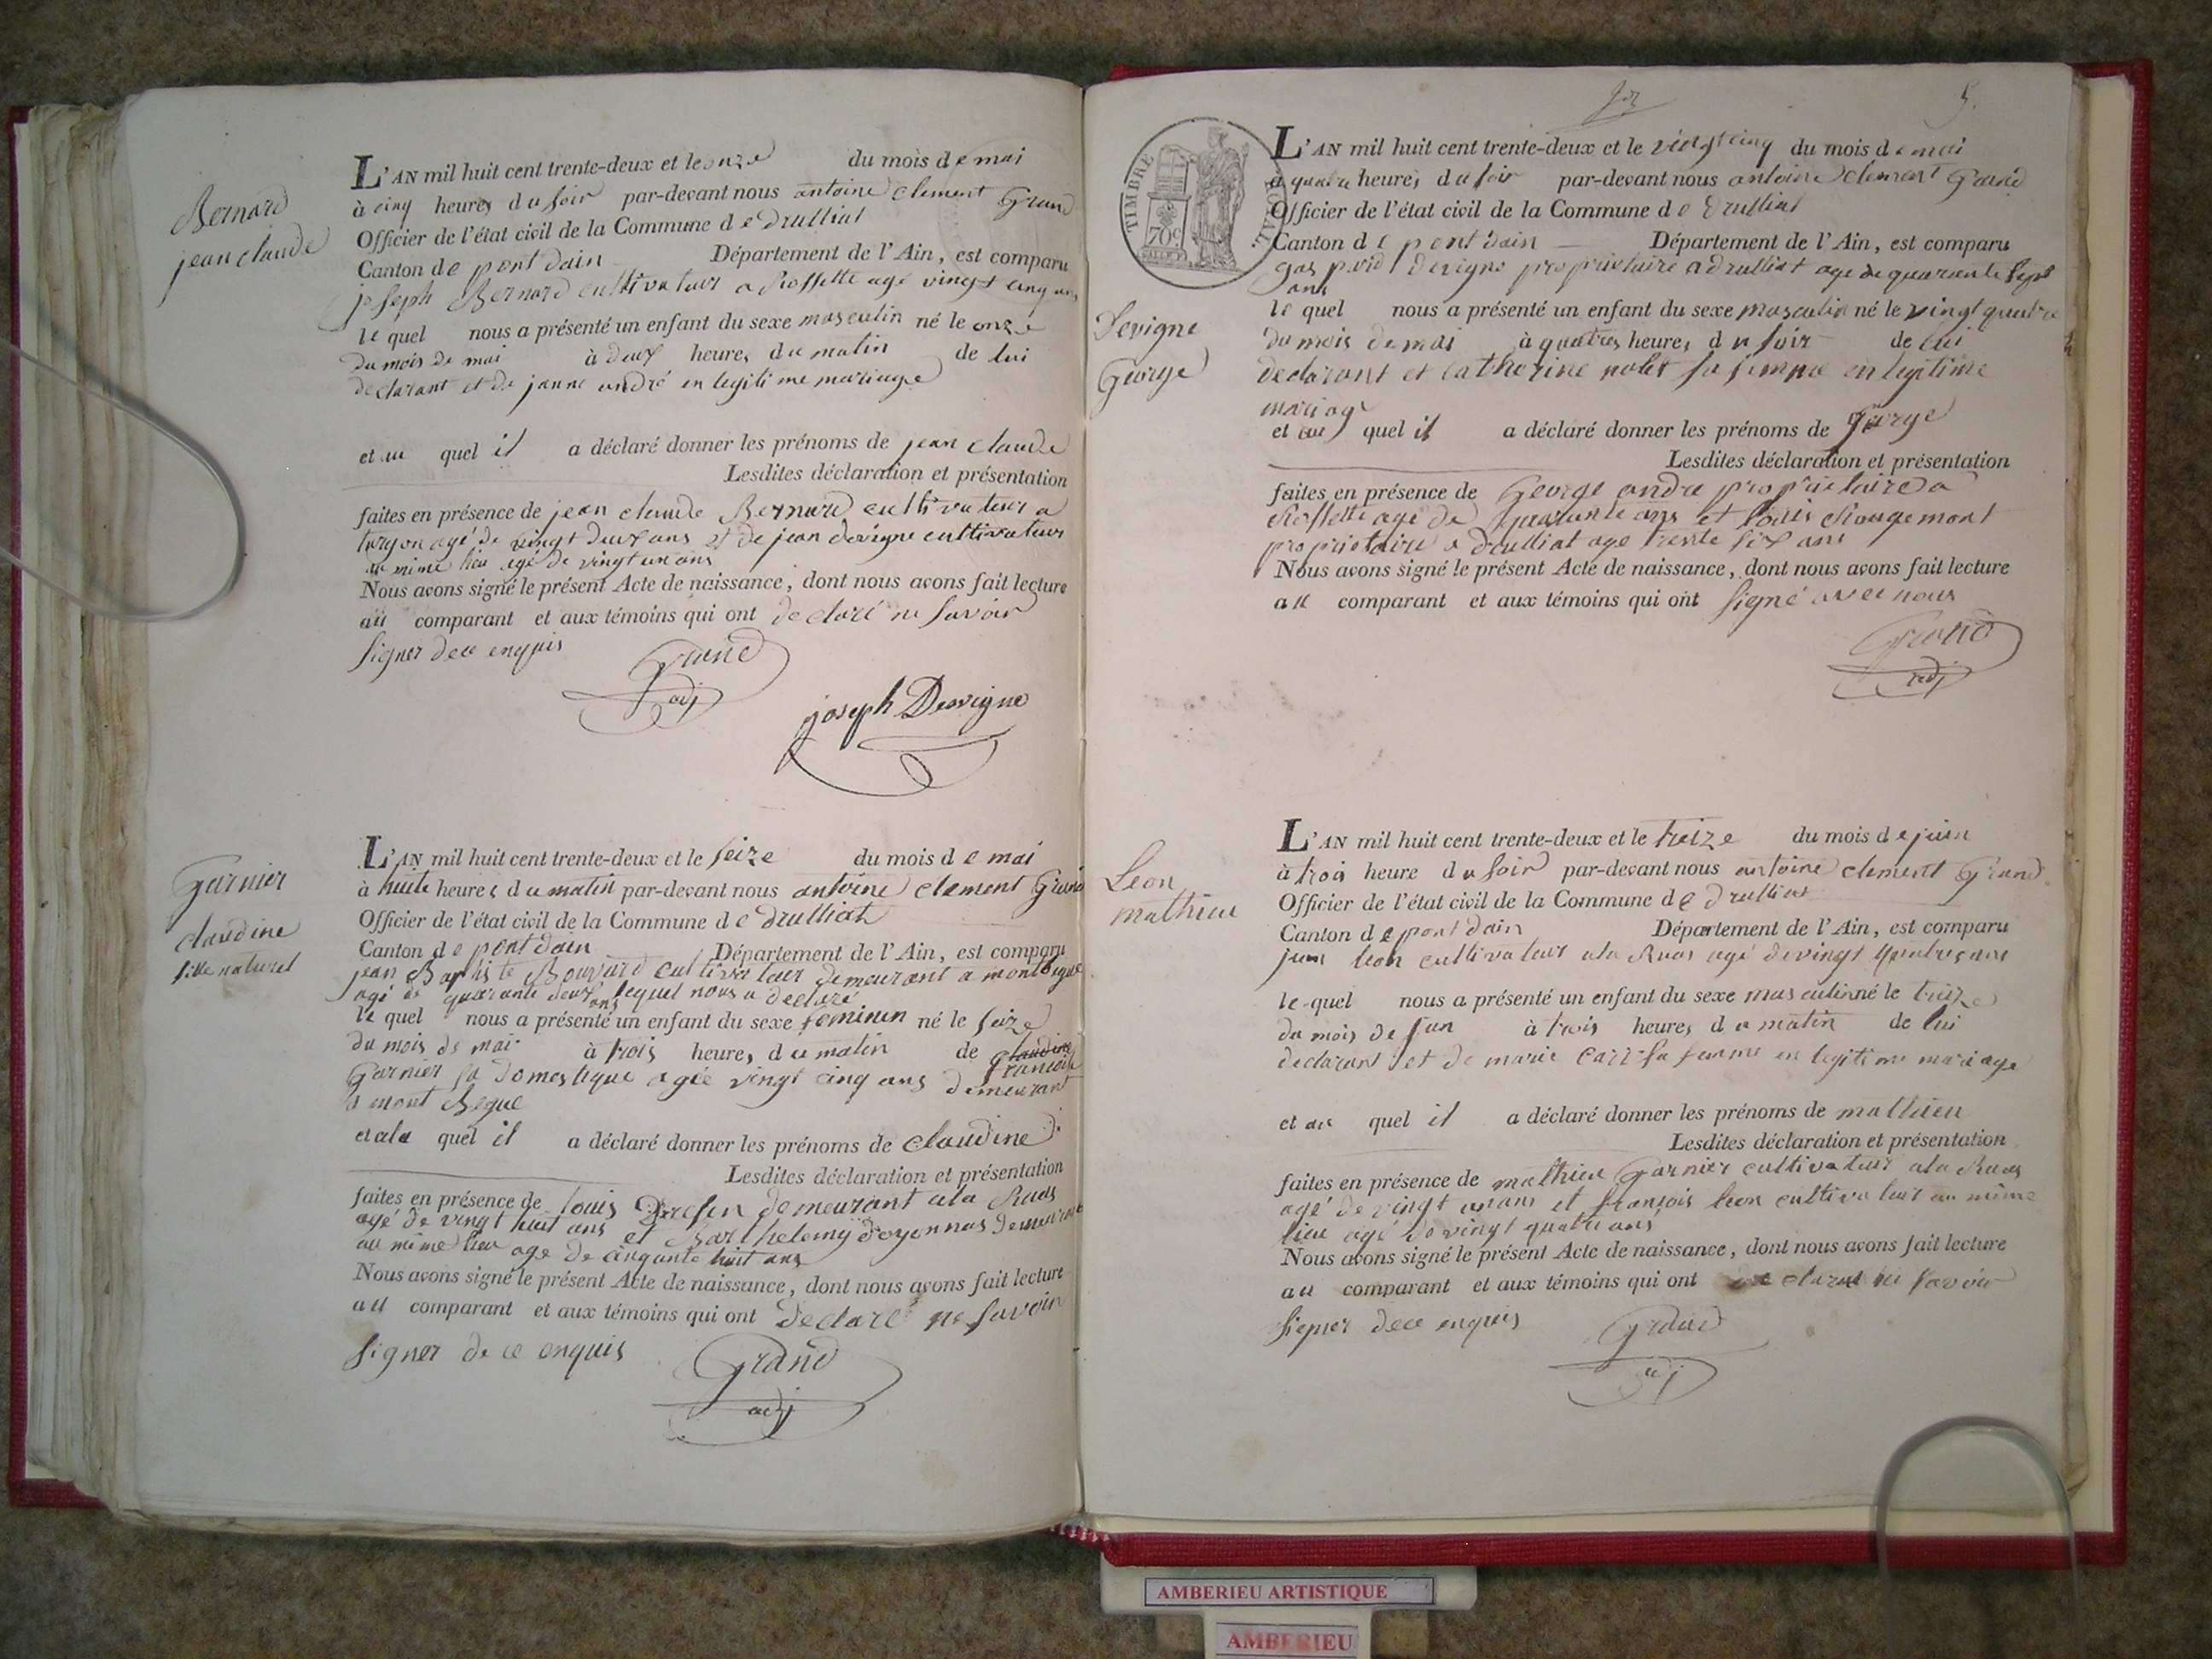 Bernard
jean claude
L'AN mil huit cent trente-deux et le onze du mois de mai
à cinq heures du soir par-devant nous antoine clement Grand
Officier de l'état civil de la Commune de Drulliat
Canton de pont dain Département de l'Ain, est comparu
joseph Bernard cultivateur a Rossette agé vingt cinq ans
le quel nous a présenté un enfant du sexe masculin né le onze
du mois de mai à deux heures du matin de lui
declarant et de janne andré en legitime mariage
et au quel il a déclaré donner les prénoms de jean claude
Lesdites déclaration et présentation
faites en présence de jean claude Bernard cultivateur a
turgon agé de vingt deux ans et de jean devigne cultivateur
au même lieu agé de vingt un ans
Nous avons signé le présent Acte de naissance, dont nous avons fait lecture
au comparant et aux témoins qui ont declaré ne savoir
signer dece enquis
Grand
adj
joseph Devigne
Garnier
claudine
fille naturel
L'AN mil huit cent trente-deux et le seize du mois de mai
à huite heures du matin par-devant nous antoine clement Grand
Officier de l'état civil de la Commune de Drulliat
Canton de pont dain Département de l'Ain, est comparu
jean Baptiste Bouvard cultivateur demeurant a mont Begue
agé de quarante deux ans lequel nous a declaré
le quel nous a présenté un enfant du sexe feminin né le seize
du mois de mai à trois heures du matin de claudine francoise
Garnier sa domestique agée vingt cinq ans demeurant
a mont Begue
et a la quel il a déclaré donner les prénoms de claudine
Lesdites déclaration et présentation
faites en présence de louis demeurant ala Ruas
agé de vingt huit ans et Barthelemy d'oyonnas demeurant
au même lieu age de cinquante huit ans
Nous avons signé le présent Acte de naissance, dont nous avons fait lecture
au comparant et aux témoins qui ont declaré ne savoir
signer de ce enquis
Grand
adj
5
TIMBRE
70c
L'AN mil huit cent trente-deux et le vingt cinq du mois de mai
à quatre heures du soir par-devant nous antoine clement Grand
Officier de l'état civil de la Commune de Drulliat
Canton de pont dain Département de l'Ain, est comparu
gaspard devigne proprietaire a drulliat age de quarante sept
ans
le quel nous a présenté un enfant du sexe masculin né le vingt quatre
du mois de mai à quatres heures du soir de lui
declarant et catherine nolet sa femme en legitime
mariage
Devigne
George
et au quel il a déclaré donner les prénoms de George
Lesdites déclaration et présentation
faites en présence de George andre proprietaire a
Rossette age de quarante ans et louis Rougemont
proprietaire a drulliat age trente six ans
Nous avons signé le présent Acte de naissance, dont nous avons fait lecture
au comparant et aux témoins qui ont signé avec nous
Grand
adj
Leon
mathieu
L'AN mil huit cent trente-deux et le treize du mois de juin
à trois heure du soir par-devant nous antoine clement Grand
Officier de l'état civil de la Commune de Drulliat
Canton de pont dain Département de l'Ain, est comparu
leon cultivateur ala Ruas agé de vingt quatres ans
le quel nous a présenté un enfant du sexe masculin né le treize
du mois de juin à trois heures du matin de lui
declarant et de marie sa femme en legitime mariage
et au quel il a déclaré donner les prénoms de mathieu
Lesdites déclaration et présentation
faites en présence de mathieu Garnier cultivateur ala Ruas
agé de vingt un ans et francois leon cultivateur au même
lieu agé de vingt quatre ans
Nous avons signé le présent Acte de naissance, dont nous avons fait lecture
au comparant et aux témoins qui ont declaré ne savoir
signer dece enquis
Grand
adj
AMBERIEU ARTISTIQUE
AMBERIEU